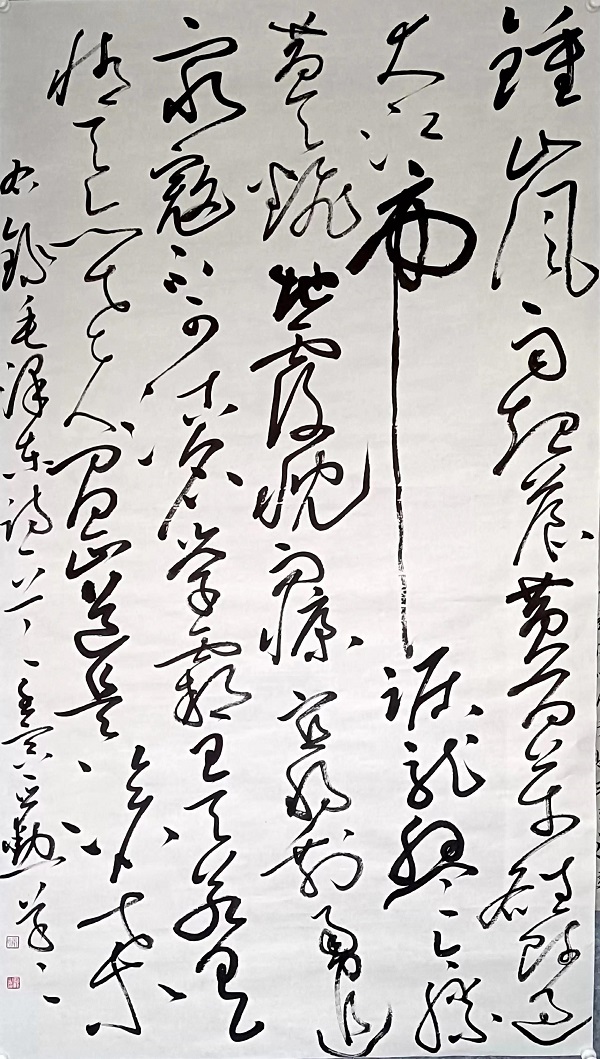 鍾山风雨起苍黄百万雄师过
大江虎踞龙盘今胜
昔天翻地覆慨而慷宜将剩勇追
穷寇不可沽名学霸王天若有
情天亦老人间正道是沧桑
右錄毛泽东诗一首